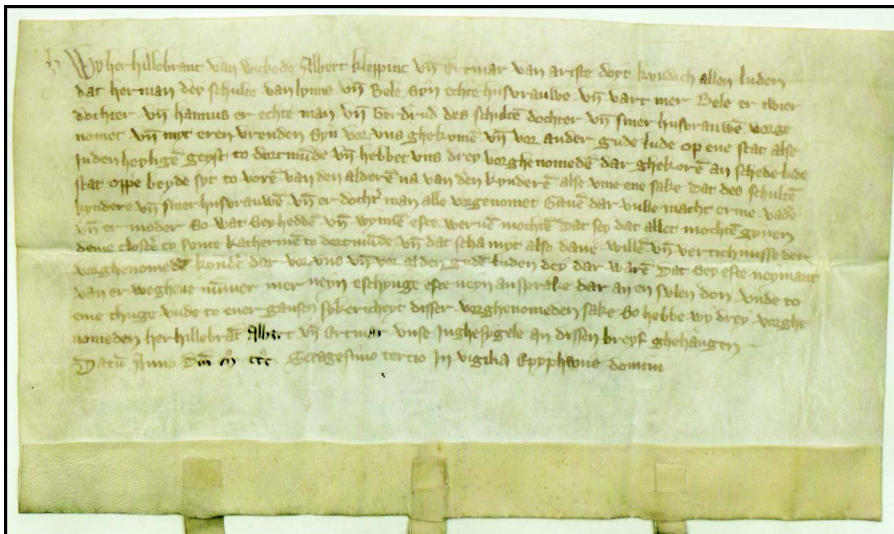 Wy her hillebrant van wickede Albert kleppinc vn̄ Ertmar van ariste doyt kyndich allen luden
dat herman dey schulte van lynne vn̄ Bele syn echte husvrauwe vn̄ vart mer Bele er twier
dochter vn̄ hannus er echte man vn̄ Gerdrud des schultē dochter vn̄ siner husvrauwē vorge
nomet vn̄ myt eren vrenden syn vor vns ghekomē vn̄ vor ander gude lude op ene stat alse
in den heyligē geyst to dortmūde vn̄ hebbet vns drey vorghenomedē dar ghekorē an schede lude
stat oppe beyde syt to vorē van den alderē na van den kynderē alse vme ene sake Dat des schultē
kyndere vn̄ siner husvrauwē vn̄ er dochtˀ man alle vorgenomet Gauē dar vulle macht erme vadˀ
vn̄ er moder So wat sey heddē vn̄ wynnē efte weruē mochtē Dat sey dat allet mochtē gyuen
deme closte to sunte katherinē to dortmūde vn̄ dat scha myt also dane willē vn̄ vertichnisse der
vorghenomedē kyndē dar vor vns vn̄ vor al den gudē luden dey dar warē Dat sey efte neymant
van er weghene nūmer mer neyn eschynge efte neyn ansprake dar an en sulen don vnde to
eme thuge vnde to ener gansen sykericheyt disser vorghenomeden sake So hebbe wy drey vorghe
nomeden her hillebrāt Albert vn̄ Ertmar vnse Inghesygele an dissen breyf ghehangen
Datū Anno Dn̄i Mͦ cccͦ Sexagesimo tertio In vigilia Epyphanie domini